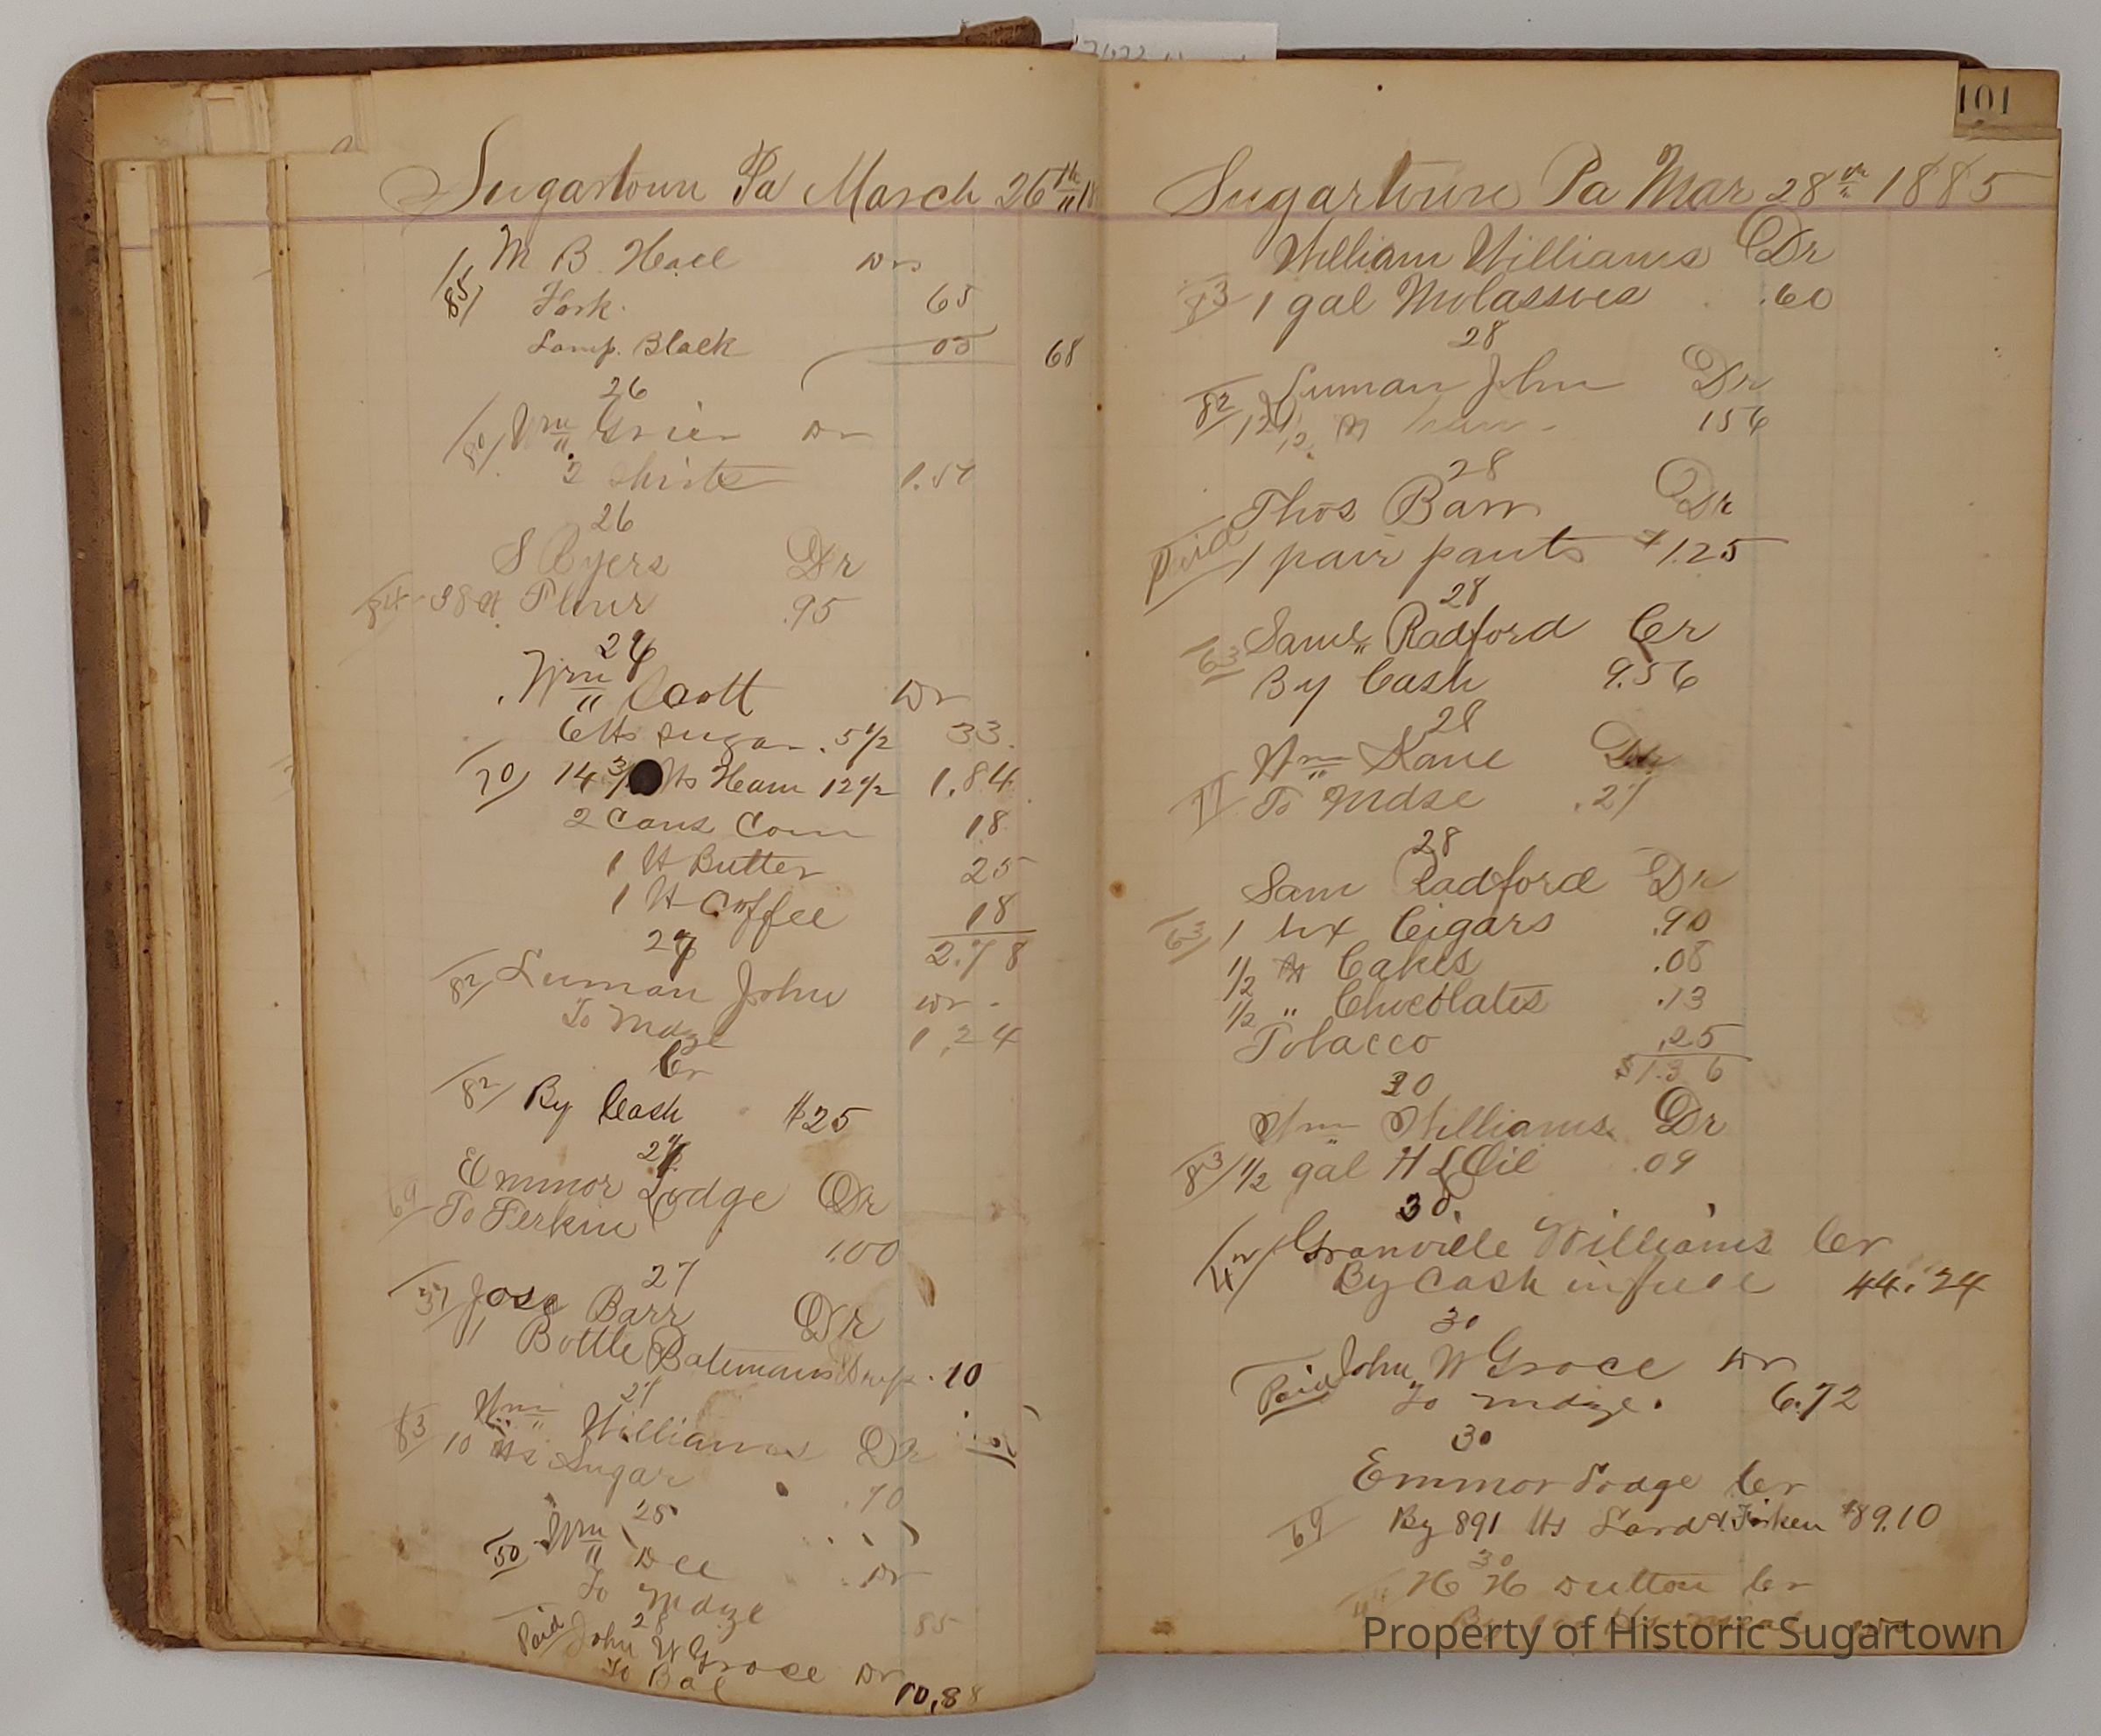 Sugartown Pa March 26th 18
M B Hall Dr
85 Fork. 65
Lamp. Black 03 68
26
80 Wm Grier Dr
2 Shirts 1.50
26
S Byers Dr
84 38 lb Flour .95
26
Wm Scott Dr
6 lbs Sugar . 5 1/2 33
70 14 3/ lbs Ham 12 1/2 1.84
2 Cans Corn 18
1 lb Butter 25
1 lb Coffee 18
2.78
27
82 Luman John Dr
To Mdze 1.24
Cr
82 By Cash $25
27
Emmor Lodge Dr
69 To Ferkin 1.00
27
37 Jose Barr Dr
1 Bottle Batemans Drops .10
27
Wm Williams Dr
83 10 lbs Sugar .70
28
50 Wm Dee Dr
To Mdze 85
28
Paid John W Grace Dr
To Bal 10.88
101
Sugartown Pa Mar 28th 1885
William Williams Dr
83 1 gal Molasses .60
28
82 Luman John Dr
12 1/2 lb 156
28
Thos Barr Dr
Paid 1 pair pants $1.25
28
63 Saml Radford Cr
By Cash 9.56
28
Wm Kane Dr
77 To Mdse .27
28
Sam Radford Dr
63 1 bx Cigars .90
1/2 lb Cakes .08
1/2 " Chocolates .13
Tobacco .25
$1.36
30
Wm Williams Dr
83 1/2 gal H L Oil .09
30.
42 Granville Williams Cr
By Cash in full 44.24
30
Paid John W Grace Dr
To Mdze. 6.72
30
Emmor Lodge Cr
69 By 891 lbs Lard & Firken $89.10
30
H H Dutton Cr
By
Property of Historic Sugartown